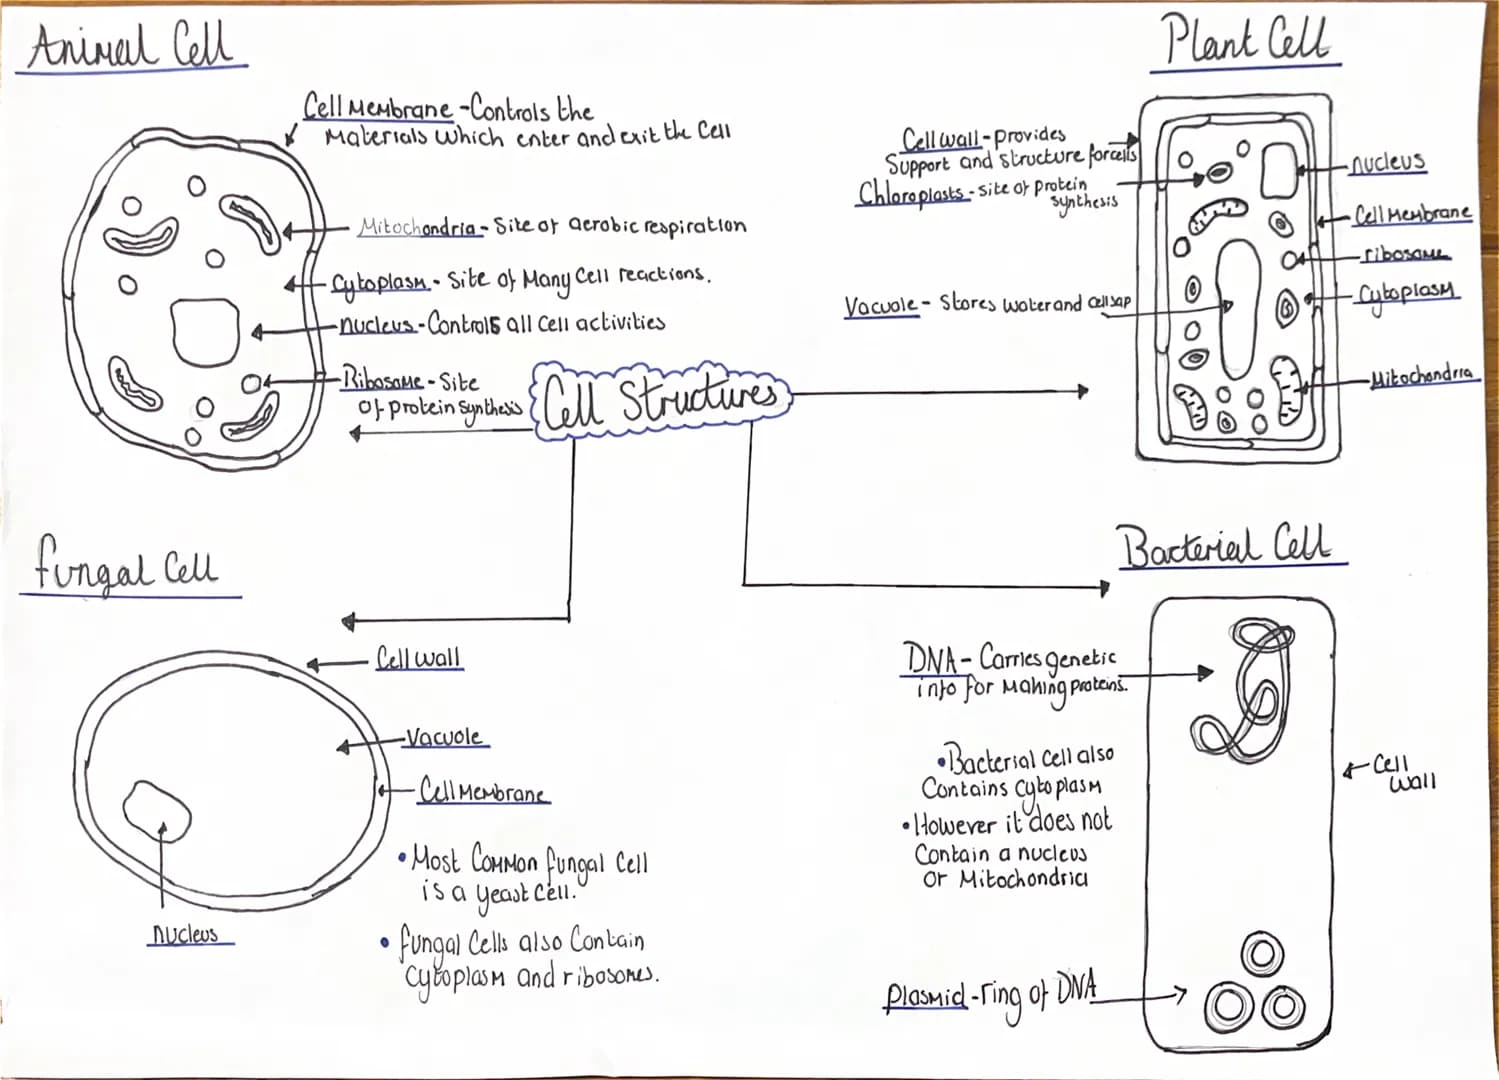 Animal Cell
Cell Membrane - Controls the
Materials which enter and exit the Cell
Mitochondria - Site of aerobic respiration
Cytoplasm - Site of Many Cell reactions.
nucleus - Controls all Cell activities
Ribosome - Site
of protein synthesis
Cell Structures
Plant Cell
Cell wall - provides
Support and structure for cells
Chloroplasts - site of protein
synthesis
Vacuole - Stores water and cell sap
nucleus
Cell Membrane
ribosome
Cytoplasm
Mitochondria
fungal Cell
Cell wall
Vacuole
Cell Membrane
nucleus
• Most Common fungal Cell
is a yeast Cell.
• fungal Cells also Contain
Cytoplasm and ribosomes.
Bacterial Cell
DNA - Carries genetic
info for Making proteins.
• Bacterial Cell also
Contains Cytoplasm
• However it does not
Contain a nucleus
or Mitochondria
Cell
wall
plasmid - ring of DNA